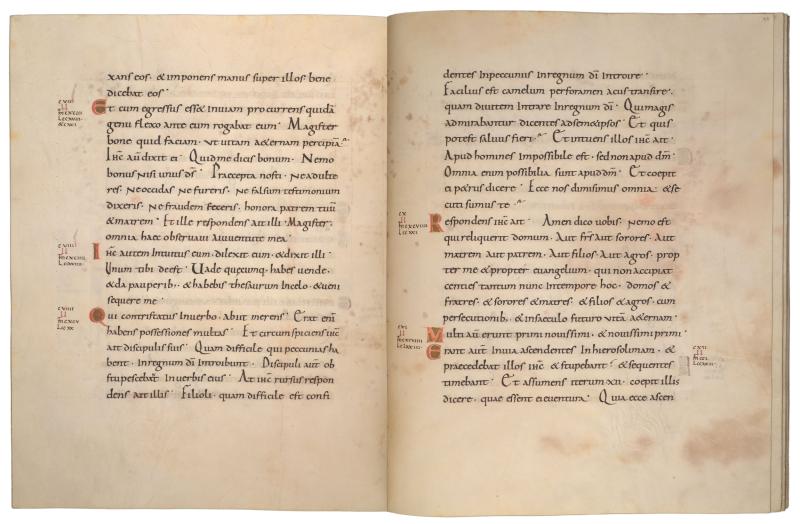 xans eos · & imponens manus super illos bene
dicebat eos ·
Et cum egressus ess& inviam procurrens quidā
genu flexo ante eum rogabat eum · Magister
bone quid faciam · ut uitam aeternam percipiā
Ihc aū dixit ei · Quid me dicis bonum · Nemo
bonus nisi unus ds̄ · Praecepta nosti · Ne adulte
res · Ne occidas Ne fureris · Ne falsum testimonium
dixeris · Ne fraudem feceris · honora patrem tuū
& matrem · Et ille respondens ait illi · Magister ·
omnia haec observavi a iuventute mea ·
Ihc autem intuitus eum · dilexit eum · & dixit illi ·
Unum tibi deest · Uade quecumq · habes uende ·
& da pauperib · & habebis thesaurum in celo · & ueni
sequere me ·
Qui contristatus in uerbo · abiit merens · Erat enī
habens possessiones multas · Et circumspiciens ihc
ait discipulis suis · Quam difficile qui peccunias ha
bent · In regnum dī introibunt · Discipuli aut ob
stupesceb&nt In uerbis eius · At ihc rursus respon
dens ait illis · Filioli · quam difficile est confi
dentes Inpeccuniis Inregnum dī Introire ·
Facilius est camelum per foramen acus transire ·
quam diuitem Intrare In regnum dī · Qui magis
admirabantur dicentes ad sem&ipsos · Et quis
potest saluus fieri · Et intuens illos ihc ait ·
Apud homines Impossibile est · sed non apud dm̄ ·
Omnia enim possibilia sunt apud dm̄ · Et coepit
ei petrus dicere · Ecce nos dimisimus omnia · & se
cuti sumus te ·
Respondens ihc ait · Amen dico uobis · Nemo est
qui reliquerit domum · Aut frs̄ aut sorores · Aut
matrem aut patrem · Aut filios · Aut agros · prop
ter me & propter euangelium · qui non accipiat
centies tantum nunc Intempore hoc · domos &
fratres · & sorores & matres · & filios & agros · cum
persecutionib · & in saeculo futuro uitā aeternam ·
Multi aū erunt primi nouissimi · & nouissimi primi ·
Erant aut Inuia ascendentes In hierosolimam · &
praecedebat illos ihc & stupebant · & sequentes
timebant · Et assumens iterum · xii · coepit illis
dicere · quae essent ei euentura · Quia ecce ascen